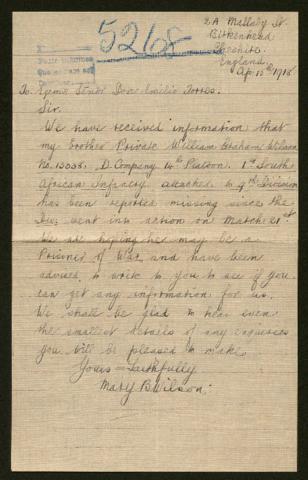 5268
2A Mallaby St.
Birkenhead
Cheshire.
England.
Ap. 15th 1918
To. Exmo Señor Don Emilio Torres.
Sir.
We have received information that
my brother Private William Graham Wilson
No. 13038. D. Company 14th Platoon. 1st South
African Infantry attached to 9th Division
has been reported missing since the
went into action on March 21st
We are hoping he may be a
Prisoner of War, and have been
advised to write to you to see if you
can get any information for us.
We shall be glad to hear even
the smallest details of any enquiries
you will be pleased to make.
Yours Faithfully
Mary B. Wilson.